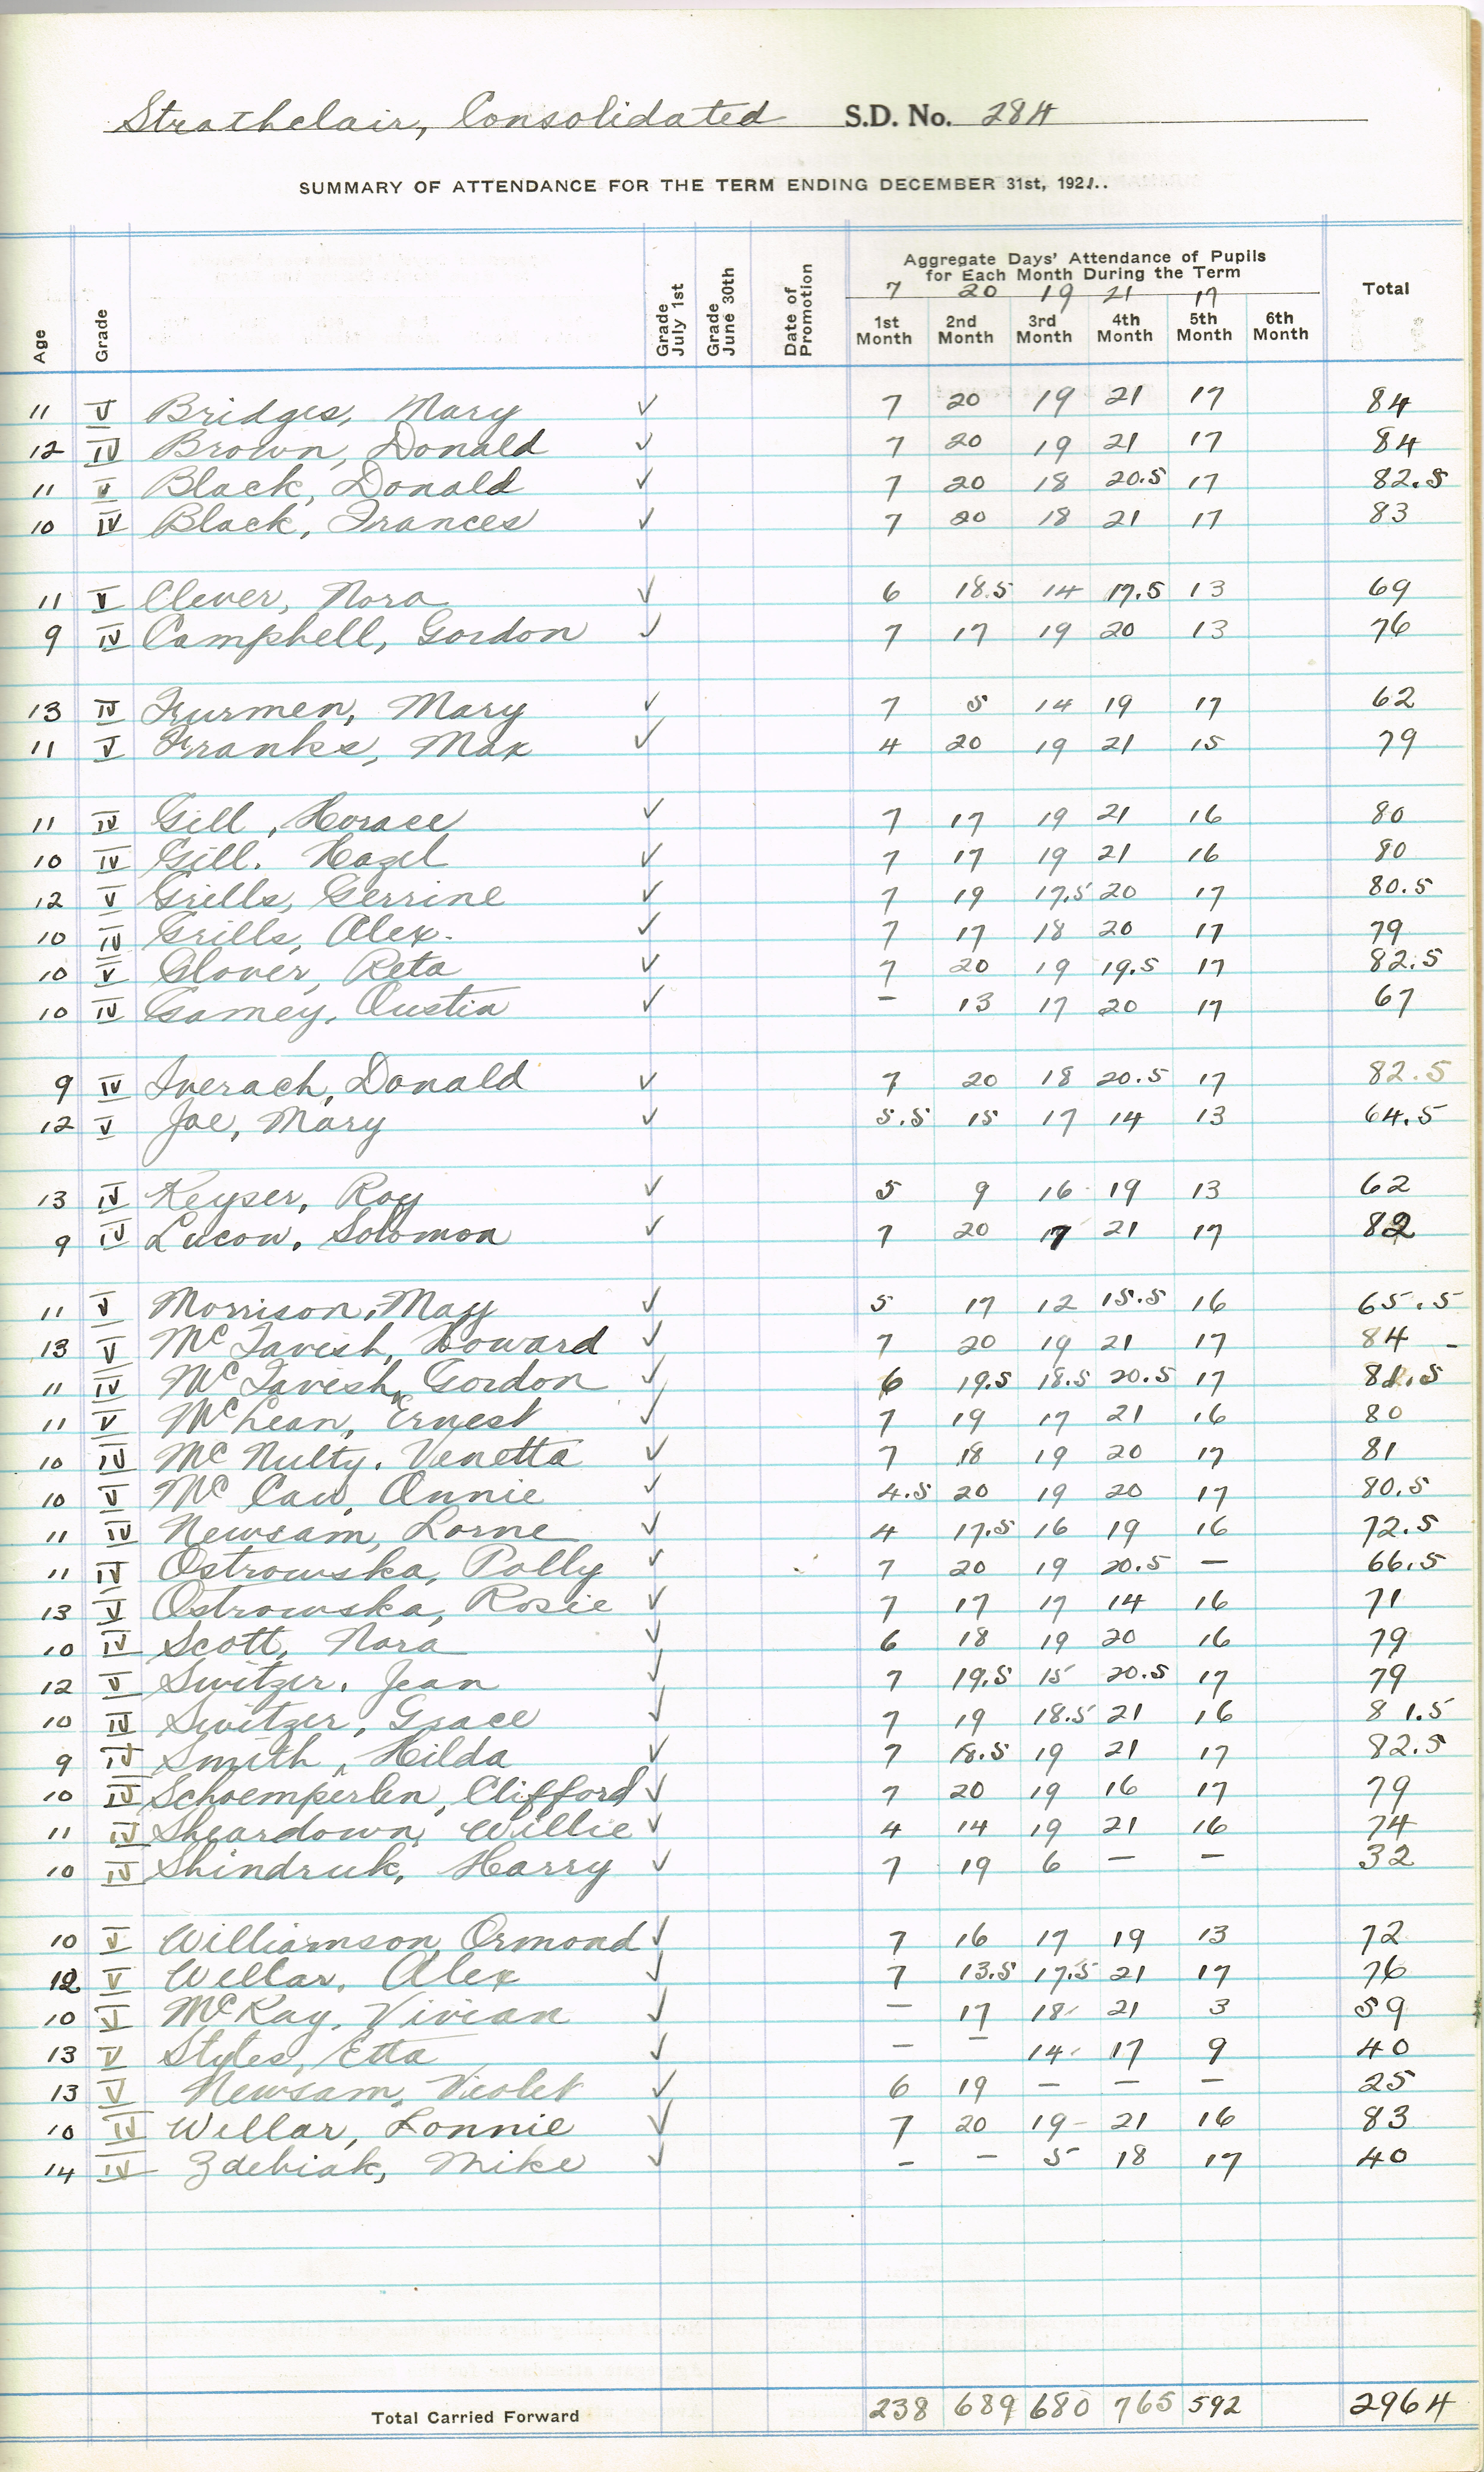 Strathclair, Consolidated S.D. No. 284
SUMMARY OF ATTENDANCE FOR THE TERM ENDING DECEMBER 31st, 1921..
Aggregate Days' Attendance of Pupils
for Each Month During the Term
7 20 19 21 17
Age Grade Grade July 1st Grade June 30th Date of Promotion 1st Month 2nd Month 3rd Month 4th Month 5th Month 6th Month Total
11 V Bridges, Mary ✓ 7 20 19 21 17 84
12 IV Brown, Donald ✓ 7 20 19 21 17 84
11 V Black, Donald ✓ 7 20 18 20.5 17 82.5
10 IV Black, Frances ✓ 7 20 18 21 17 83
11 V Clever, Nora ✓ 6 18.5 14 17.5 13 69
9 IV Campbell, Gordon ✓ 7 17 19 20 13 76
13 IV Furmen, Mary ✓ 7 5 14 19 17 62
11 V Franks, Max ✓ 4 20 19 21 15 79
11 IV Gill, Horace ✓ 7 17 19 21 16 80
10 IV Gill. Hazel ✓ 7 17 19 21 16 80
12 V Grills, Gerrine ✓ 7 19 17.5 20 17 80.5
10 IV Grills, Alex. ✓ 7 17 18 20 17 79
10 V Glover, Reta ✓ 7 20 19 19.5 17 82.5
10 IV Gamey, Austia ✓ – 13 17 20 17 67
9 IV Inerach, Donald ✓ 7 20 18 20.5 17 82.5
12 V Joe, Mary ✓ 5.5 15 17 14 13 64.5
13 IV Keyser, Roy ✓ 5 9 16 19 13 62
9 IV Lucow, Solomon ✓ 7 20 17 21 17 82
11 V Morrison, May ✓ 5 17 12 15.5 16 65.5
13 V McTavish, Howard ✓ 7 20 19 21 17 84
11 IV McTavish, Gordon ✓ 6 19.5 18.5 20.5 17 81.5
11 V McLean, Ernest ✓ 7 19 17 21 16 80
10 IV McNulty, Venetta ✓ 7 18 19 20 17 81
10 V McCaw, Annie ✓ 4.5 20 19 20 17 80.5
11 IV Newsam, Lorne ✓ 4 17.5 16 19 16 72.5
11 IV Ostrowska, Polly ✓ 7 20 19 20.5 – 66.5
13 V Ostrowska, Rosie ✓ 7 17 17 14 16 71
10 IV Scott, Nora ✓ 6 18 19 20 16 79
12 V Switzer, Jean ✓ 7 19.5 15 20.5 17 79
10 IV Switzer, Grace ✓ 7 19 18.5 21 16 81.5
9 IV Smith, Hilda ✓ 7 18.5 19 21 17 82.5
10 IV Schoemperlen, Clifford ✓ 7 20 19 16 17 79
11 IV Sheardown, Willie ✓ 4 14 19 21 16 74
10 IV Shindruk, Harry ✓ 7 19 6 – – 32
10 V Williamson Ormond ✓ 7 16 17 19 13 72
12 V Wellar, Alex ✓ 7 13.5 17.5 21 17 76
10 V McKay, Vivian ✓ – 17 18 21 3 59
13 V Styles, Etta ✓ – – 14 17 9 40
13 V Newsam, Violet ✓ 6 19 – – – 25
10 IV Wellar, Lonnie ✓ 7 20 19 21 16 83
14 IV Zdebiak, Mike ✓ – – 5 18 17 40
Total Carried Forward 238 689 680 765 592 2964